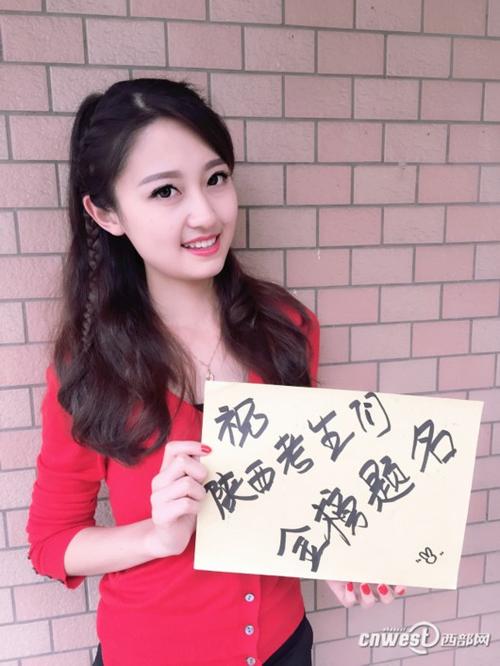 祝
陕西考生们
金榜题名
cnwest西部网